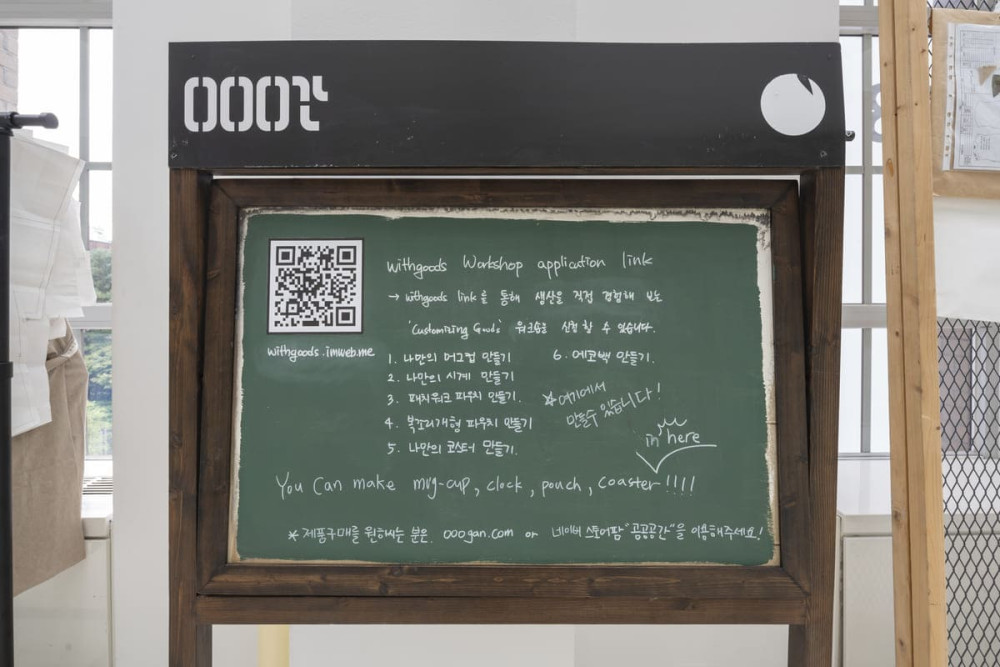 000간
withgoods Workshop application link
→ withgoods link를 통해 생산을 직접 경험해 보는
'Customizing Goods' 워크숍을 신청할 수 있습니다.
withgoods.imweb.me
1. 나만의 머그컵 만들기
2. 나만의 시계 만들기
3. 패치워크 파우치 만들기.
4. 복조리개형 파우치 만들기
5. 나만의 코스터 만들기.
6. 에코백 만들기.
* 여기에서
만들수 있습니다!
in here
You Can make mug-cup, clock, pouch, coaster !!!!
* 제품구매를 원하시는 분은 000gan.com or 네이버 스토어팜 "공공공간"을 이용해주세요!